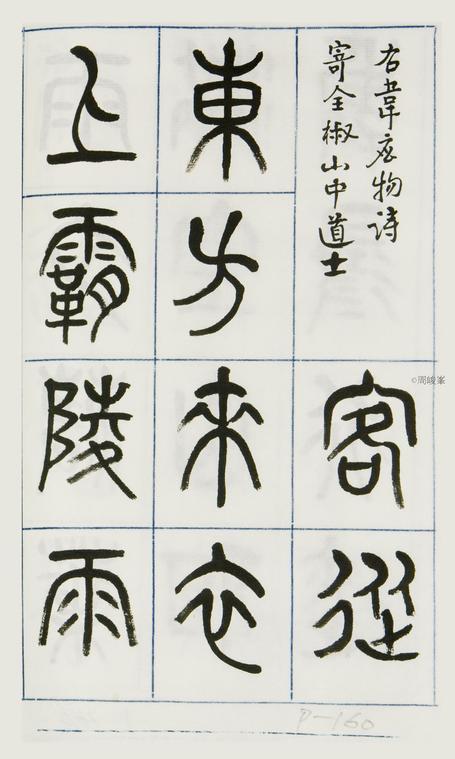 右韋应物诗
寄全椒山中道士
客從
東方来衣
上霸陵雨
©周峻峯
P-160